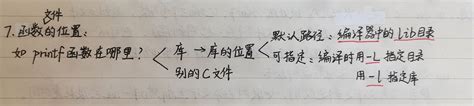 文件
7.函数的位置:
如 printf 函数在哪里? 库 → 库的位置 默认路径:编译器中的lib目录
别的C文件 可指定:编译时用-L 指定目录
用-l 指定库